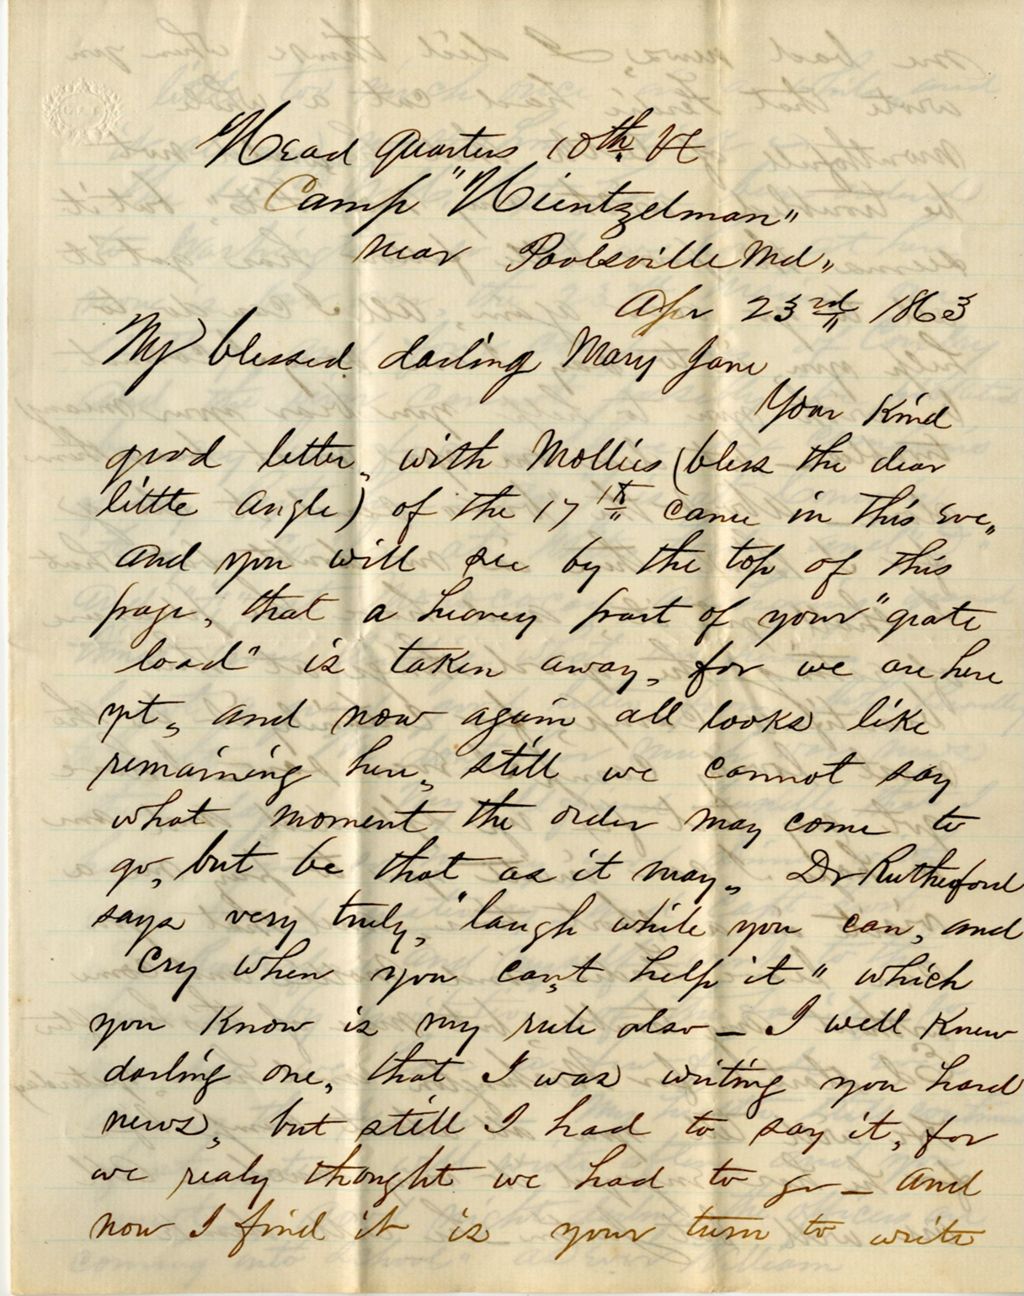 Head Quarters 10th Vt
Camp "Hientzelman"
near Poolsville Md,,
Apr 23rd 1863
My blessed darling Mary Jane
Your Kind
good letter, with Mollies (bless the dear
little angle) of the 17th came in this eve,,
and you will see by the top of this
page, that a heavey part of your "grate
load" is taken away, for we are here
yt, and now again all looks like
remaining here, still we cannot say
what moment the order may come to
go, but be that as it may, Dr Rutherford
says very truly, "laugh while you can, and
cry when you can,t help it" which
you Know is my rule also — I well Knew
darling one, that I was writing you hard
news, but still I had to say it, for
we realy thought we had to go — and
now I find it is your turn to write